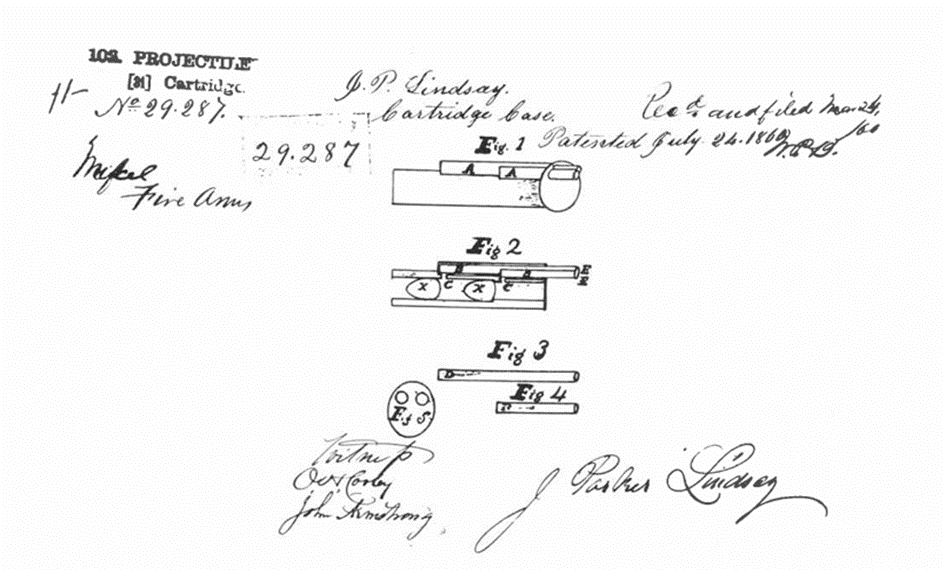 102. PROJECTILE
[21] Cartridge.
No 29.287.
29.287
Fire Arms
J. P. Lindsay.
Cartridge Case.
Patented July 24. 1860
Rec'd. and filed Mar 24,
/60
Fig. 1
A A
Fig 2
B B E
E
C C
X X
Fig 3
D
Fig 4
Fig 5.
Witness
John Armstrong
J Parker Lindsay